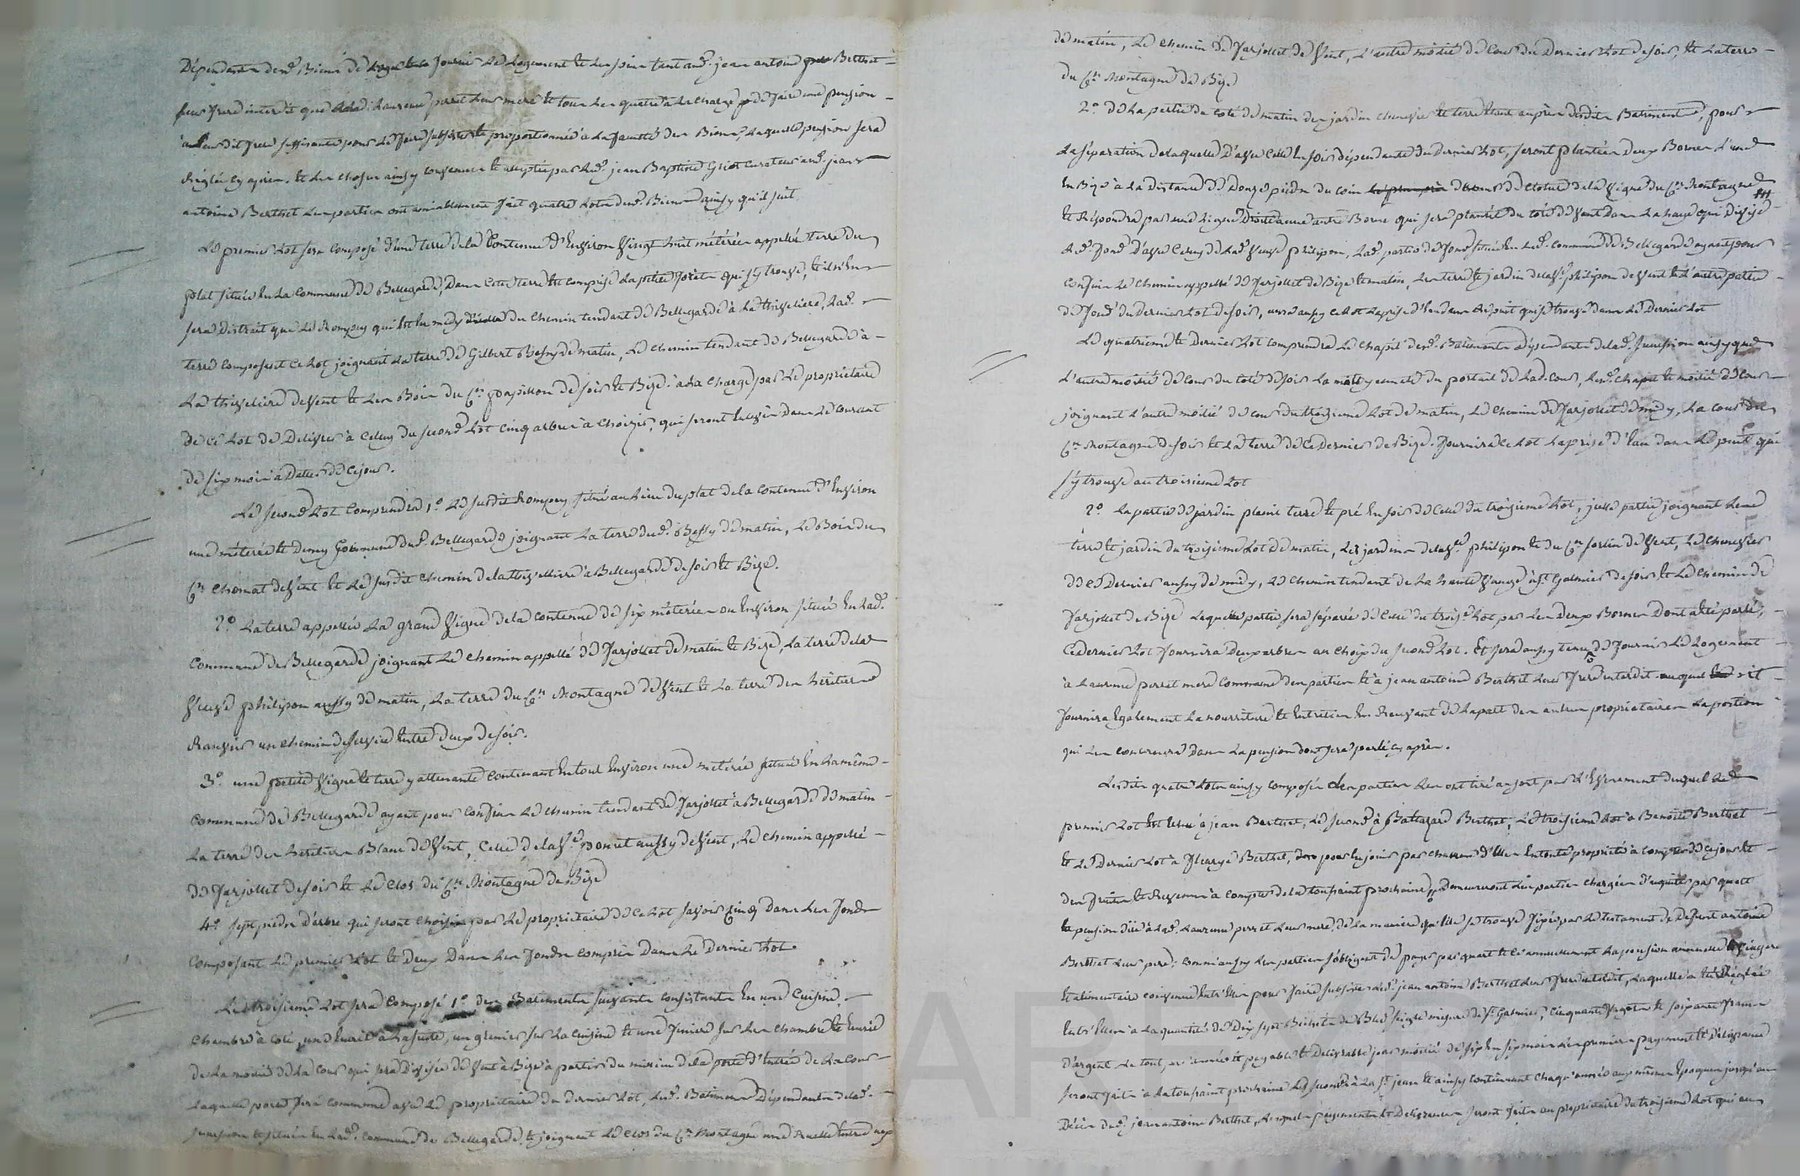 Dependant desd. Biens de fournir le Logement les leur tant aud. jean antoine Berthet
leur frere interdit que Laurence perret leur mere et tous les quatre à la charge de faire une pension
audit frere suffisante pour le faire subsister et proportionnée à la faculté des Biens, Laquelle pension sera
Réglée cy après. Et les choses ainsy convenues et acceptées par led. jean Baptiste Griot Curateur aud. jean
antoine Berthet les parties ont amiablement fait quatre lots desd. Biens ainsy qu'il suit
Le premier lot sera composé d'une terre de la Contenue d'Environ Vingt huit métérées appellée terre du
plat située en la Commune de Bellegarde, Dans cette terre est comprise la petite foret qui s'y trouve, et il n'en
sera distrait que le Rompey qui est en midy du Chemin tendant de Bellegarde à La thiveliere, lad.
terre composant ce lot joignant la terre de Gilbert Bessy de matin, le chemin tendant de Bellegarde à
La thiveliere de vent et les Bois du Cn papillon de soir et Bize. à la charge par le proprietaire
de ce lot de Delivrer à Celuy du second lot cinq arbres à choisir, qui seront dans le courant
de six mois à Dater de ce jour.
Le second lot Comprendra 1o Le susdit Rompey situé au lieu du plat de la contenue d'Environ
une métérée et demy Commune dud. Bellegarde joignant la terre dud. Bessy de matin, le Bois du
Cn Chomat de vent et le susdit chemin de la thivelliere à Bellegarde de soir et Bize.
2o La terre appellée La grand Vigne de la contenue de six métérées ou Environ située en lad.
Commune de Bellegarde joignant le chemin appellé de Farjollet de matin et Bize, la terre de la
Veuve philipon aussy de matin, la terre du Cn Montagne de vent et la terre des héritiers
un chemin de service entre deux de soir.
3o une petite Vigne et terre y attenante contenant en tout Environ une métérée située en la même
Commune de Bellegarde ayant pour confins le chemin tendant de Farjollet à Bellegarde de matin
La terre des héritiers Blanc de vent, celle de la Ve Bonnet aussy de vent, le chemin appellé
de Farjollet de soir et le clos du Cn Montagne de Bize
4o Sept pieds d'arbre qui seront choisis par le proprietaire de ce lot savoir cinq dans les fonds
composant le premier lot et deux dans les fonds compris Dans le dernier lot.
Le troisieme lot sera Composé 1o des Batiments suivants consistants En une Cuisine,
Chambre à coté, une Ecurie à la suite, un grenier sur la cuisine et une feniere sur les chambre et Ecurie
de la moitié de la cour qui sera divisée de vent à Bize à partir du milieu de la porte d'Entrée de la Cour
Laquelle porte sera commune avec le proprietaire du dernier lot, lesd. Batiments dépendants de lad.
succession et située en lad. Commune de Bellegarde, et joignant le clos du Cn Montagne une ruelle entre
de matin, le chemin de Farjollet de Vent, l'autre moitié de Cour du dernier lot de soir, et la terre
du Cn Montagne de Bize
2o De La partie du coté de matin des jardin cheneviere et terre étant auprès desdits Batiments, pour
La séparation de laquelle d'avec celle en soir dépendante du dernier lot, seront plantées deux Bornes l'une
en Bize à la distance de Douze pieds du coin de cloture de la Vigne du Cn Montagne
et Repondra par une ligne Droite à une autre Borne qui sera plantée du coté de Vent dans la haye qui divise
led. fond d'avec Celuy de lad. Veuve philipon, Lad. partie de fond située en lad. Commune de Bellegarde ayant pour
Confins le Chemin appellé de Farjollet de Bize et matin, les terre et jardin de la Ve philipon de vent et l'autre partie
de fond du dernier lot de soir, aura aussy ce lot la prise d'eau dans le puit qui se trouve dans le Dernier lot
Le quatrieme et Dernier lot comprendra le Chapit desd. Batiments dépendants de lad. succession ainsy que
L'autre moitié de Cour du coté de soir la mitoyenneté du portail de lad. Cour, lesd. Chapit et moitié de Cour
joignant l'autre moitié de cour du troisieme lot de matin, le chemin de Farjollet de midy, la cour du
Cn Montagne de soir et la terre de ce Dernier de Bize. fournira ce lot la prise d'eau dans le puit qui
s'y trouve au troisieme lot
2o La partie de jardin plane terre et pré en soir de celle du troisieme lot, jusse partie joignant les
terre et jardin du troisieme lot de matin, les jardins de la Ve philipon et du Cn fortin de Vent, le chenevier
de ce Dernier aussy de midy, le chemin tendant de la haute Vauzé à St Galmier de soir et le chemin de
Farjollet de Bize Laquelle partie sera séparée de Celle du troise. lot par les deux Bornes dont a été parlé;
Ce dernier lot fournira deux arbres au choix du second lot. Et sera aussy tenu de fournir le logement
à Laurence perret mere Commune des parties et à jean antoine Berthet leur frere interdit auquel il
fournira également la nourriture et Entretien En Recevant de la part des autres proprietaires la portion
qui les concernera dans la pension dont sera parlé cy après.
Lesdits quatre lots ainsy composés les parties les ont tiré au sort par l'Evenement duquel le
premier lot est échu à jean Berthet, le second à Baltazard Berthet, le troisieme lot à Benoite Berthet
et le Dernier lot à Fleurye Berthet, pour en jouir par chacune d'elles en toute proprieté à compter de ce jour et
des fruits et Revenus à compter de la toussaint prochaine, Demeureront les parties chargées d'acquitter par quart
la pension düe à lad. Laurence perret leur mere, de la maniere qu'elle se trouve fixée par le testament de defunt antoine
Berthet leur pere; Comme aussy les parties s'obligent de payer par quart et le annuellement la pension annuelle et viagere
et alimentaire convenue entr'elles pour faire subsister led. jean antoine Berthet leur frere interdit, Laquelle a été Réglée
entr'elles à la quantité de Dix sept Bichets de Bled seigle mesure de St Galmier, Cinquante fagots et soixante francs
d'argent Le tout par année et payable et Delivrable par moitié de six en six mois les premiers payement et Délivrance
seront faits à la toussaint prochaine le second à la St jean et ainsy continuant chaque année aux mêmes Epoques jusqu'au
Décès dud. jean antoine Berthet, Lesquels payements et Delivrances seront faits au proprietaire du troisieme lot qui en
HARF